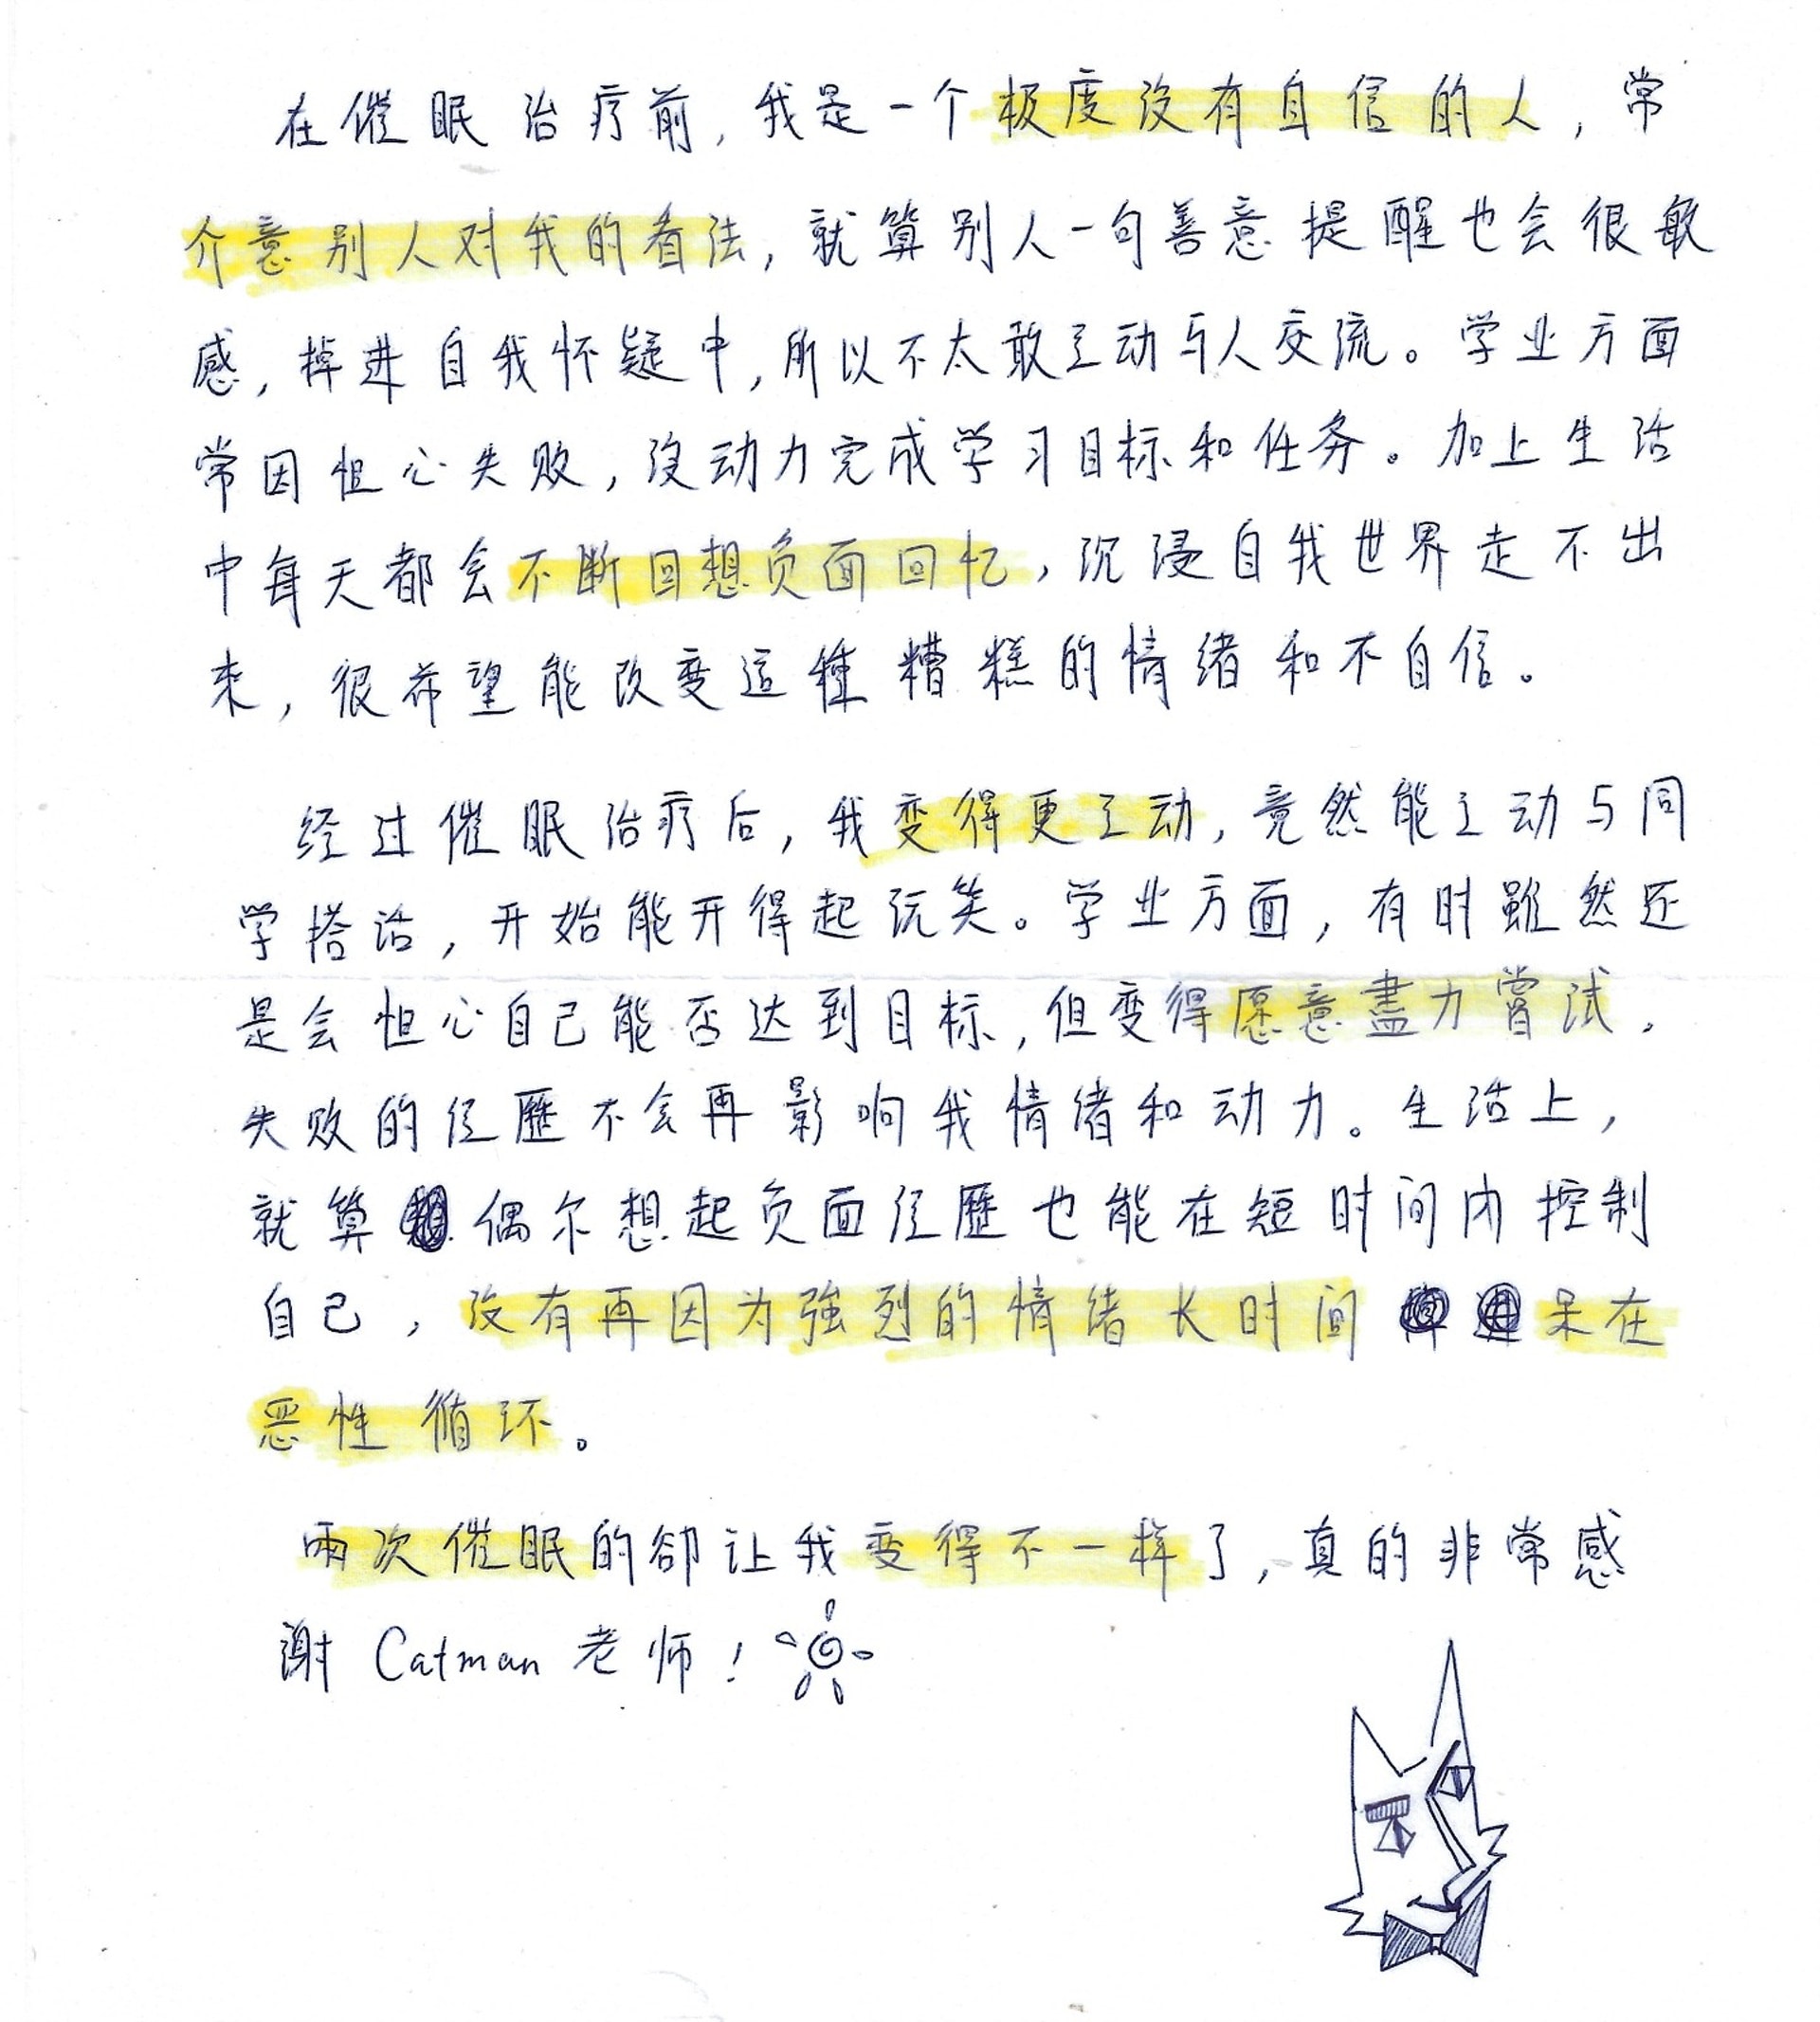 在催眠治疗前，我是一个极度没有自信的人，常
介意别人对我的看法，就算别人一句善意提醒也会很敏
感，掉进自我怀疑中，所以不太敢主动与人交流。学业方面
常因担心失败，没动力完成学习目标和任务。加上生活
中每天都会不断回想负面回忆，沉浸自我世界走不出
来，很希望能改变這種糟糕的情绪和不自信。
经过催眠治疗后，我变得更主动，竟然能主动与同
学搭话，开始能开得起玩笑。学业方面，有时雖然还
是会担心自己能否达到目标，但变得愿意盡力嘗试，
失败的经歷不会再影响我情绪和动力。生活上，
就算偶尔想起负面经歷也能在短时间内控制
自己，没有再因为強烈的情绪长时间呆在
恶性循环。
兩次催眠的卻让我变得不一样了，真的非常感
谢 Catman 老师！